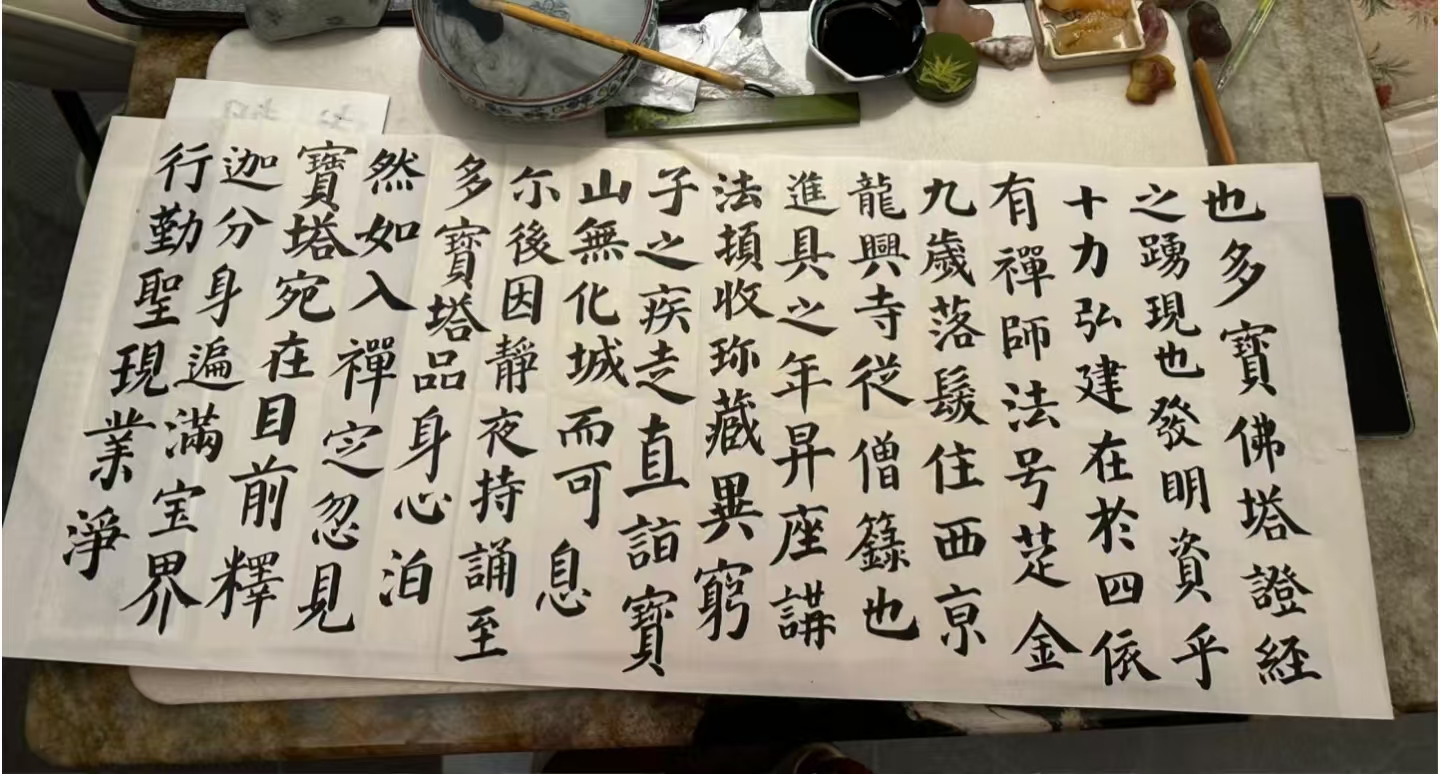 也多寶佛塔證経
之踴現也發明資乎
十力弘建在於四依
有禪師法号楚金
九歲落髮住西亰
龍興寺從僧籙也
進具之年昇座講
法頓收珎藏異窮
子之疾走直詣寶
山無化城而可息
尓後因靜夜持誦至
多寶塔品身心泊
然如入禪定忽見
寶塔宛在目前釋
迦分身遍滿宝界
行勤聖現業淨